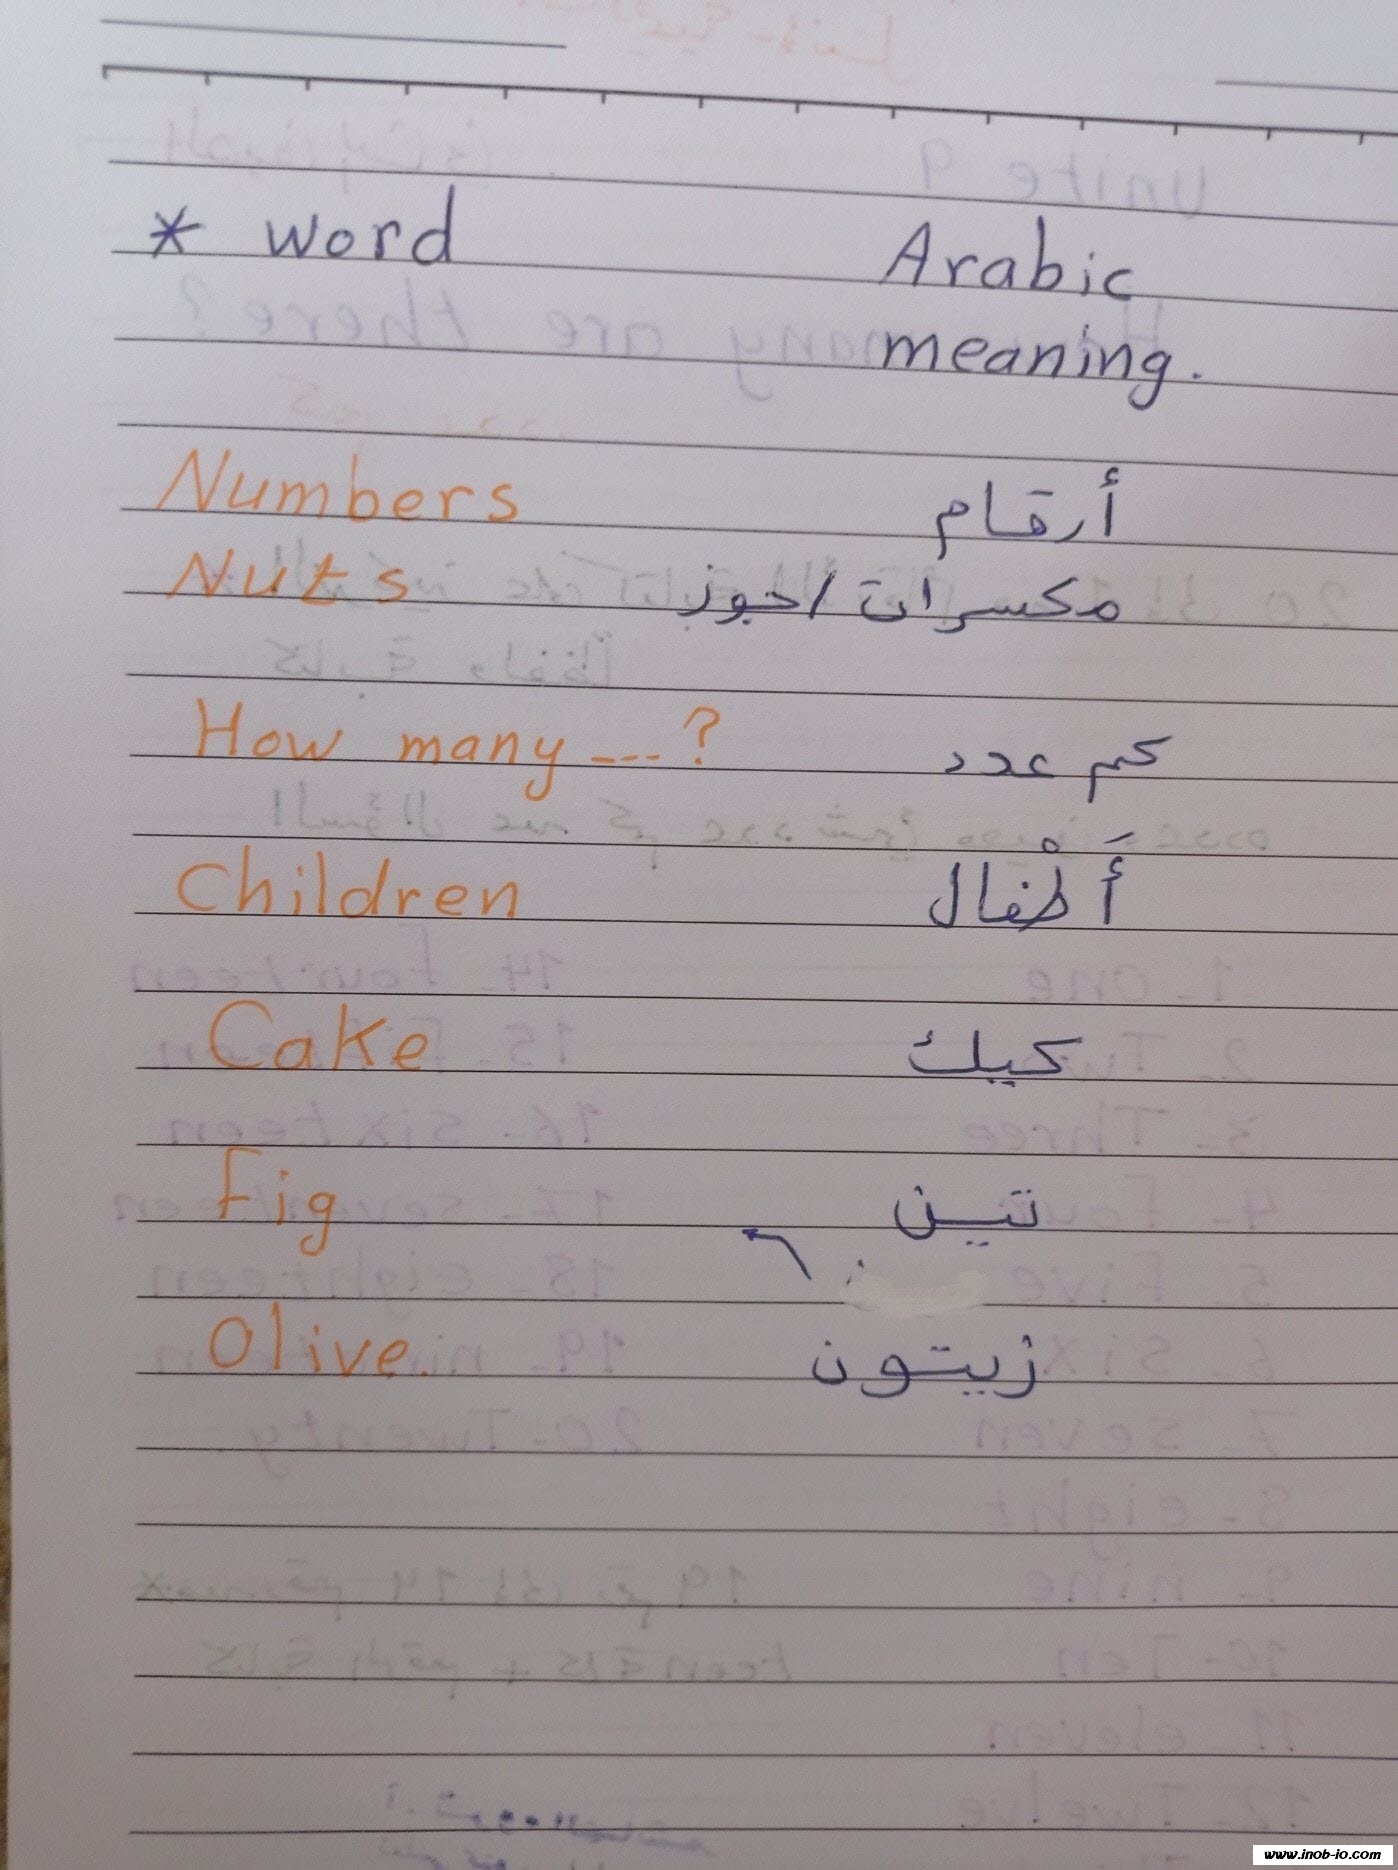 * word Arabic
meaning.
Numbers أرقام
Nuts مكسرات / جوز
How many ---? كم عدد
Children أَطْفال
Cake كيك
Fig تين
Olive. زيتون
www.inob-io.com